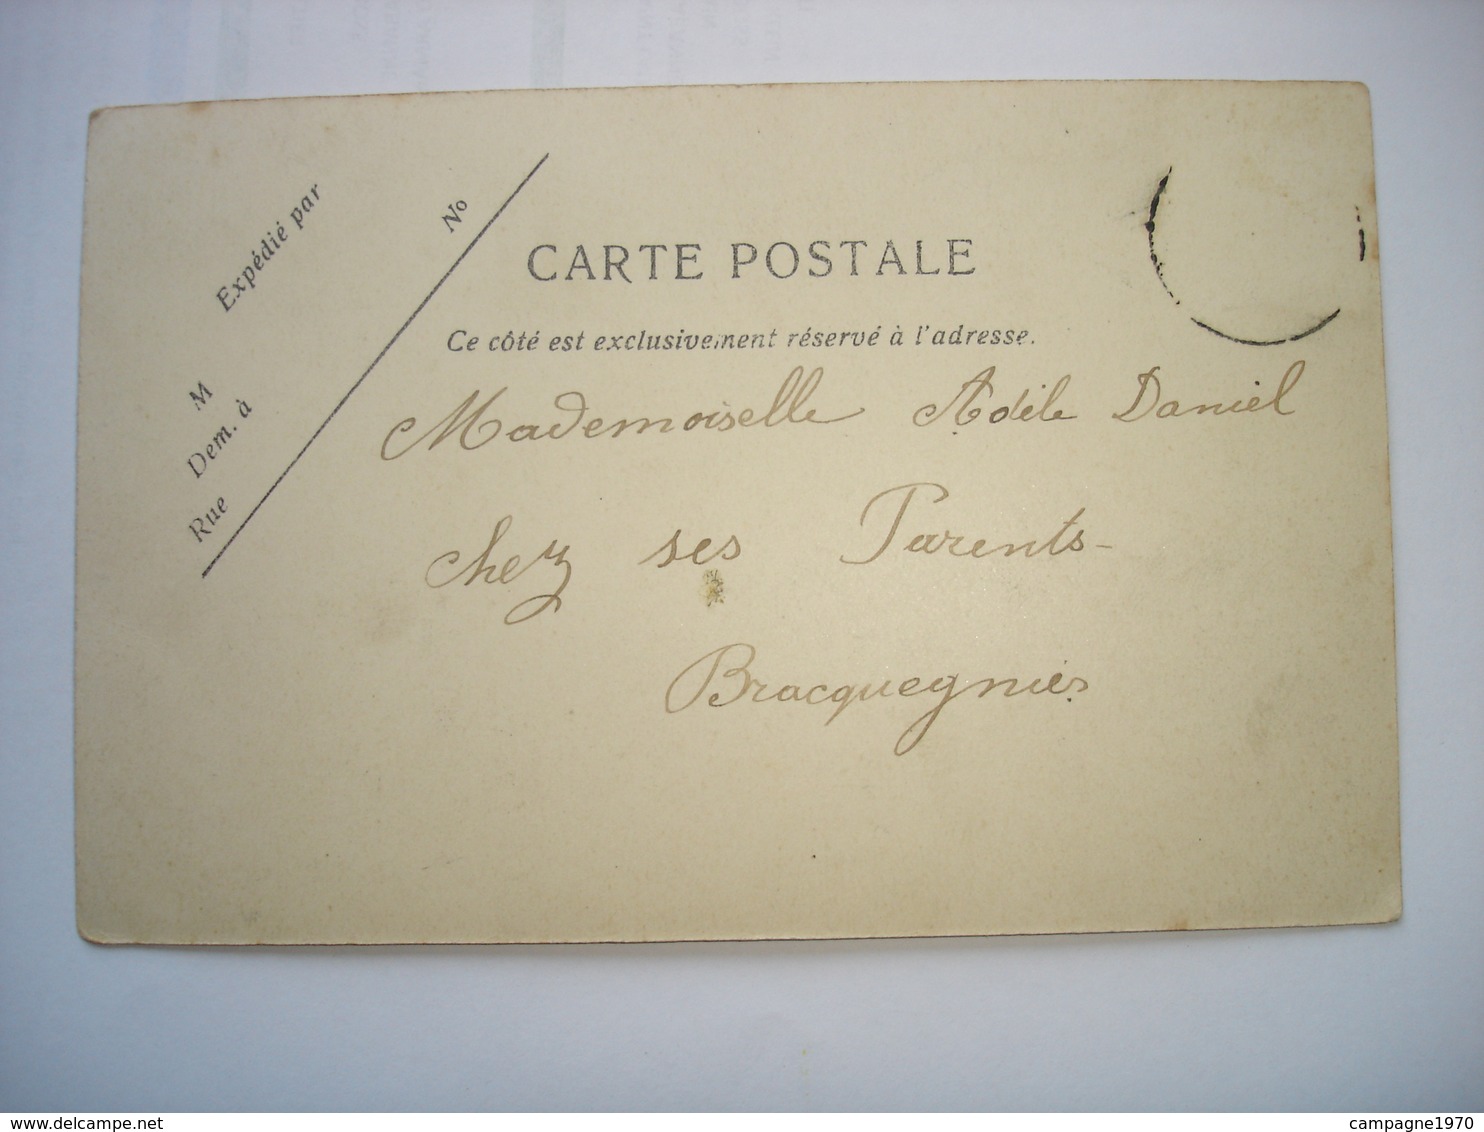 Expédié par
No
M
Dem. à
Rue
CARTE POSTALE
Ce côté est exclusivement réservé à l'adresse.
Mademoiselle Adèle Daniel
chez ses Parents-
Bracquegnies
delcampe.net
campagne1970